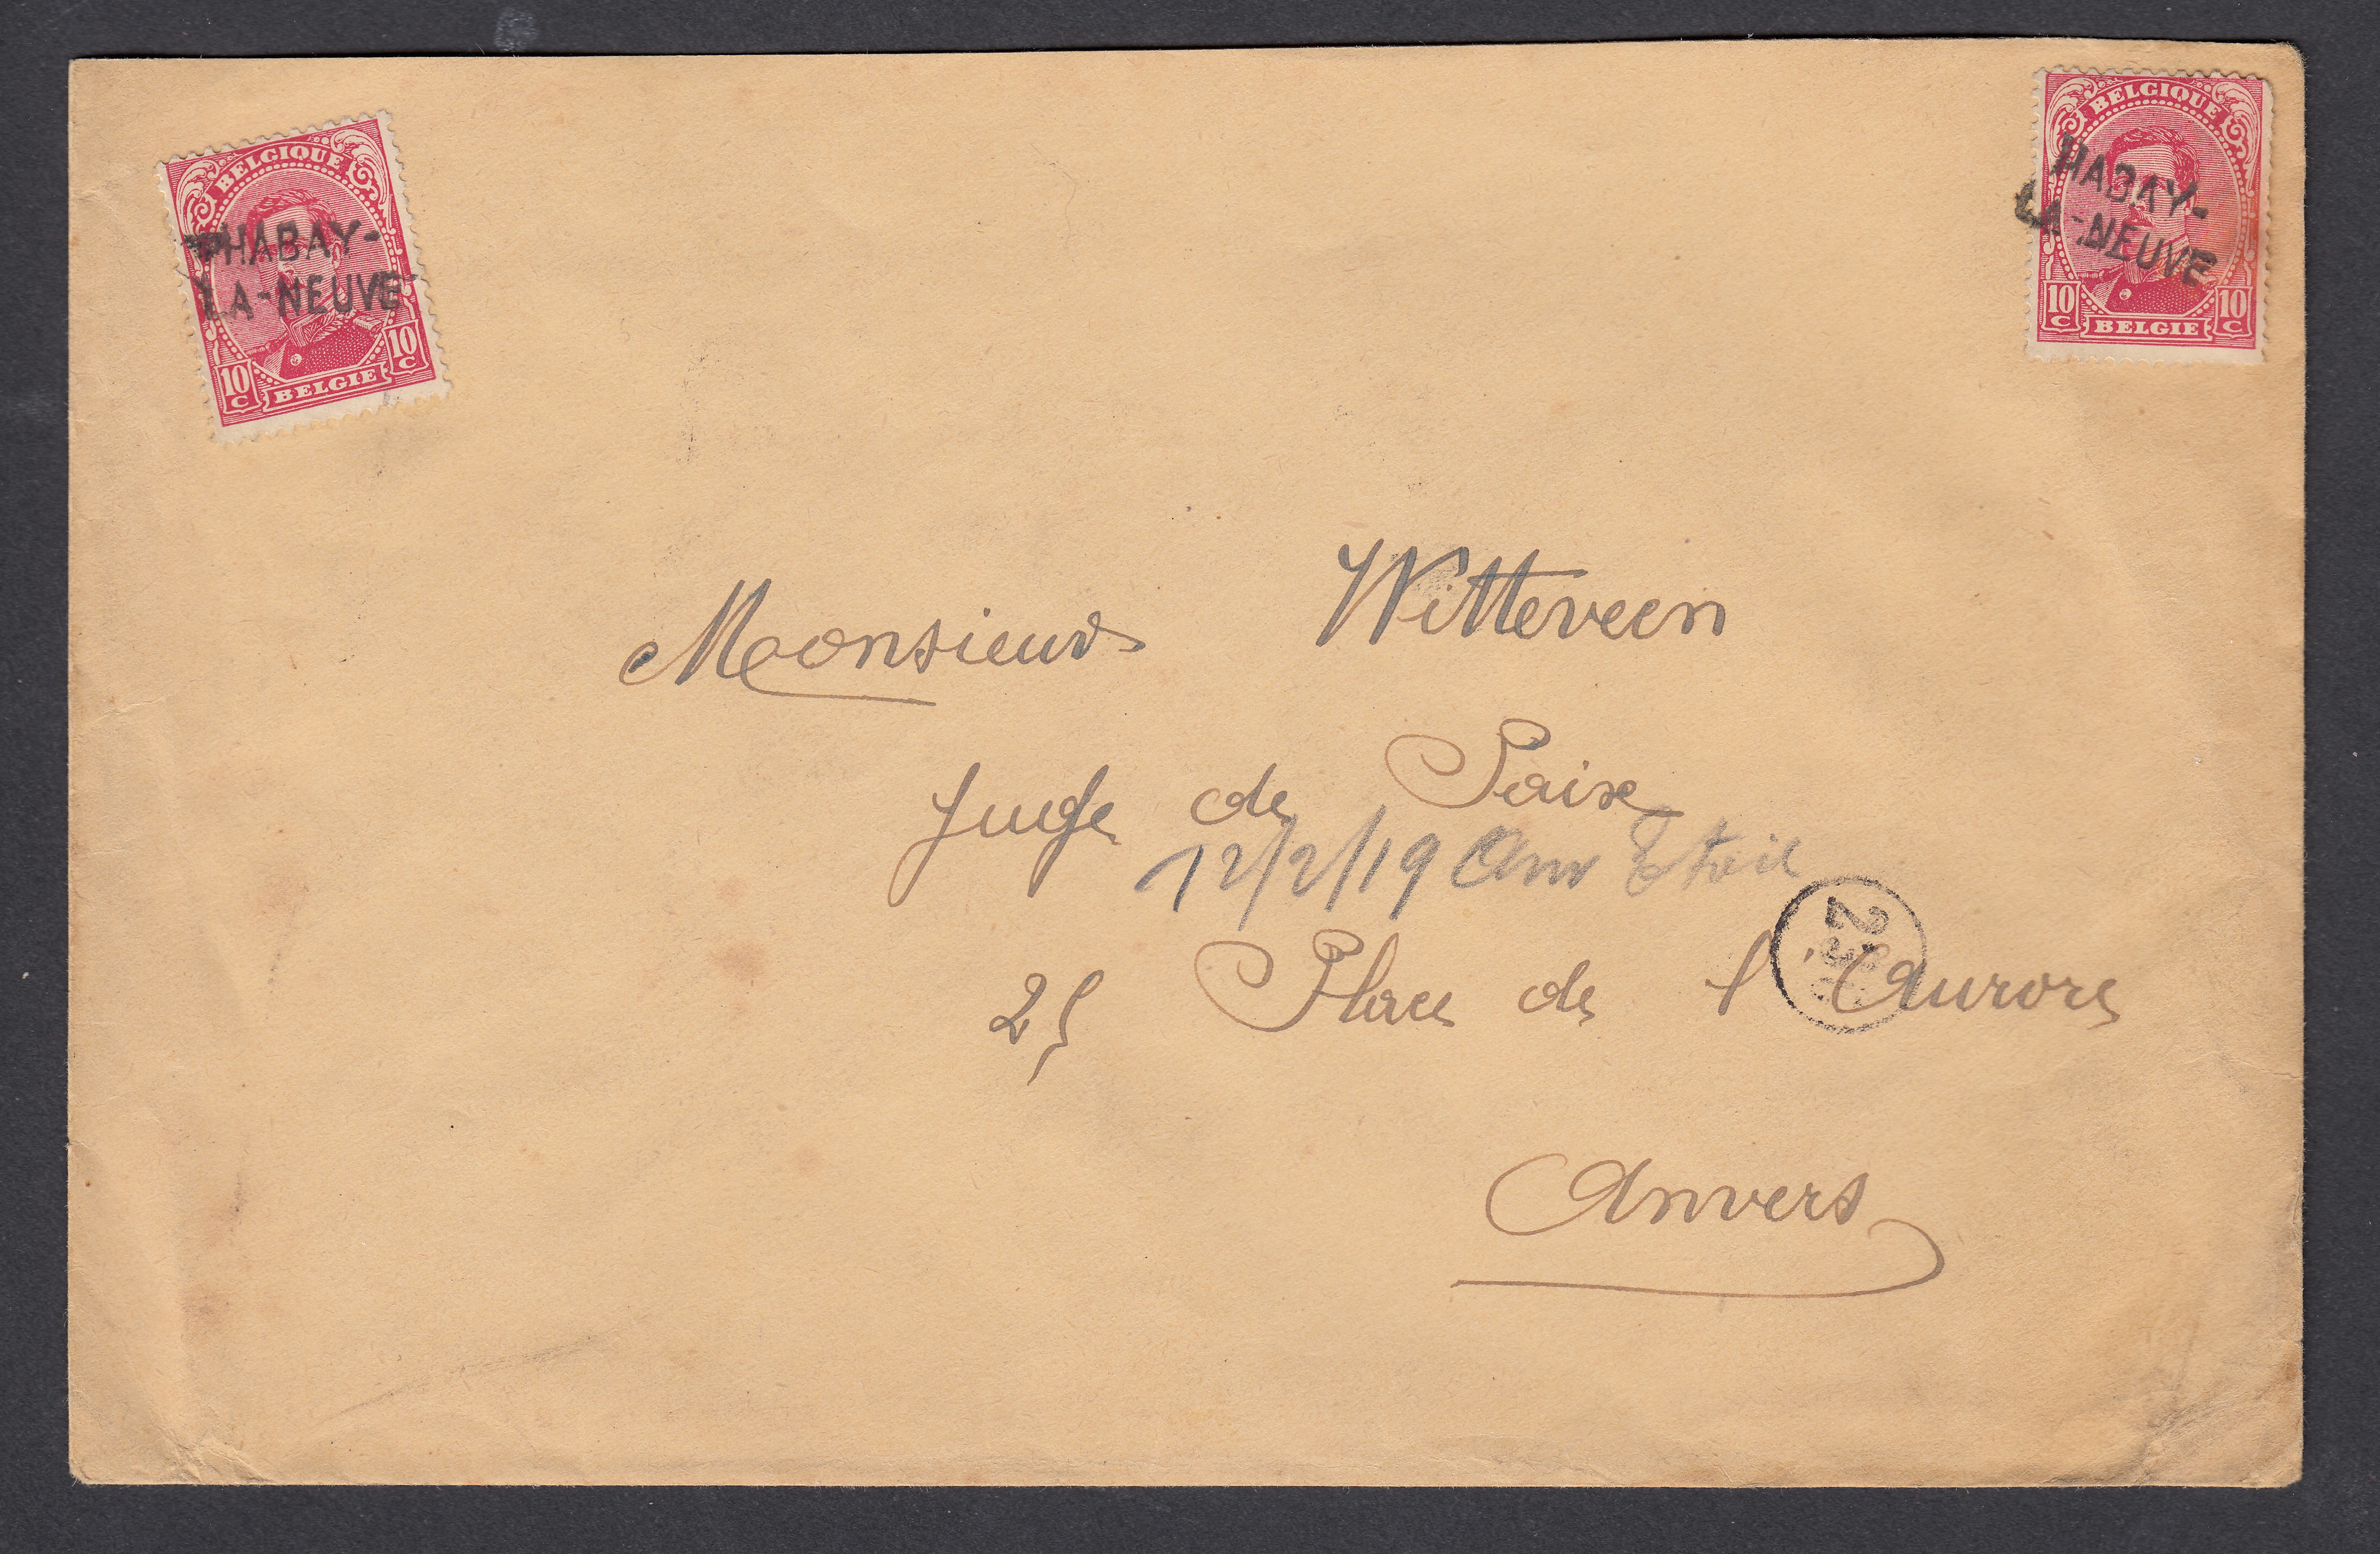 BELGIQUE
HABAY-
LA-NEUVE
10 C BELGIE 10 C
BELGIQUE
HABAY-
LA-NEUVE
10 C BELGIE 10 C
Monsieur Witteveen
Juge de Paix
12/2/19
25 Place de l'Aurore
Anvers